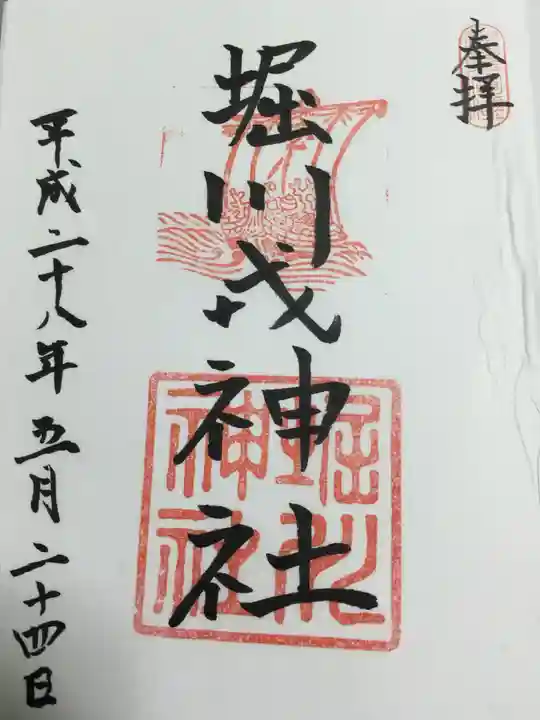 奉拝
堀川戎神社
堀川
神社
平成二十八年五月二十四日